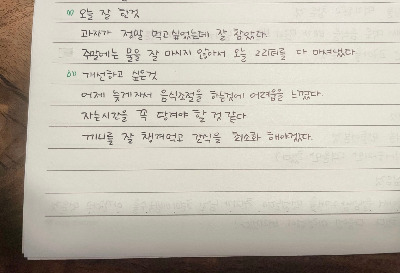 (1) 오늘 잘 한것
과자가 정말 먹고싶었는데 잘 참았다.
주말에는 물을 잘 마시지 않아서 오늘 2리터를 다 마셔냈다.
(2) 개선하고 싶은것
어제 늦게자서 음식조절을 하는것에 어려움을 느꼈다.
자는시간을 꼭 당겨야 할 것 같다
끼니를 잘 챙겨먹고 간식을 최소화 해야겠다.